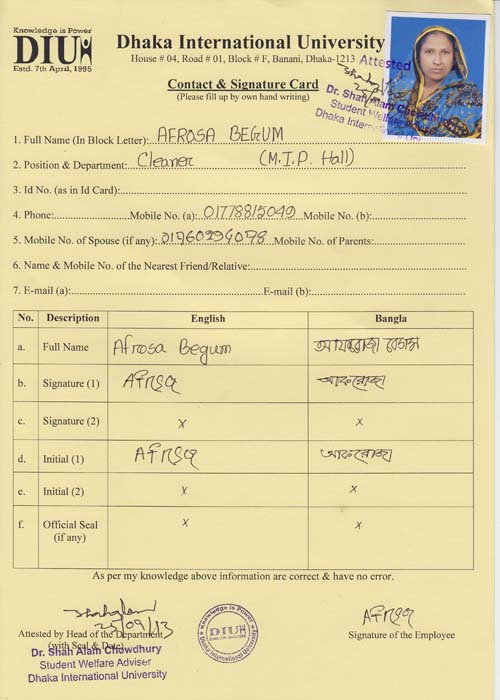 Knowledge is Power
DIU
Estd. 7th April, 1995
Dhaka International University
House # 04, Road # 01, Block # F, Banani, Dhaka-1213
Attested
Dr. Shah Alam Chowdhury
Student Welfare
Dhaka
Contact & Signature Card
(Please fill up by own hand writing)
1. Full Name (In Block Letter): AFROSA BEGUM
2. Position & Department: Cleaner (M.I.P. Hall)
3. Id No. (as in Id Card):
4. Phone: Mobile No. (a): 01778815049 Mobile No. (b):
5. Mobile No. of Spouse (if any): 01760294078 Mobile No. of Parents:
6. Name & Mobile No. of the Nearest Friend/Relative:
7. E-mail (a): E-mail (b):
No. Description English Bangla
a. Full Name Afrosa Begum আফরোজা বেগম
b. Signature (1) Afrsa আফরোজা
c. Signature (2) x x
d. Initial (1) Afrsa আফরোজা
e. Initial (2) x x
f. Official Seal (if any) x x
As per my knowledge above information are correct & have no error.
25/09/13
Afrsa
Attested by Head of the Department
(with Seal & Date)
Signature of the Employee
Dr. Shah Alam Chowdhury
Student Welfare Adviser
Dhaka International University
Knowledge is Power
DIU
Dhaka International University